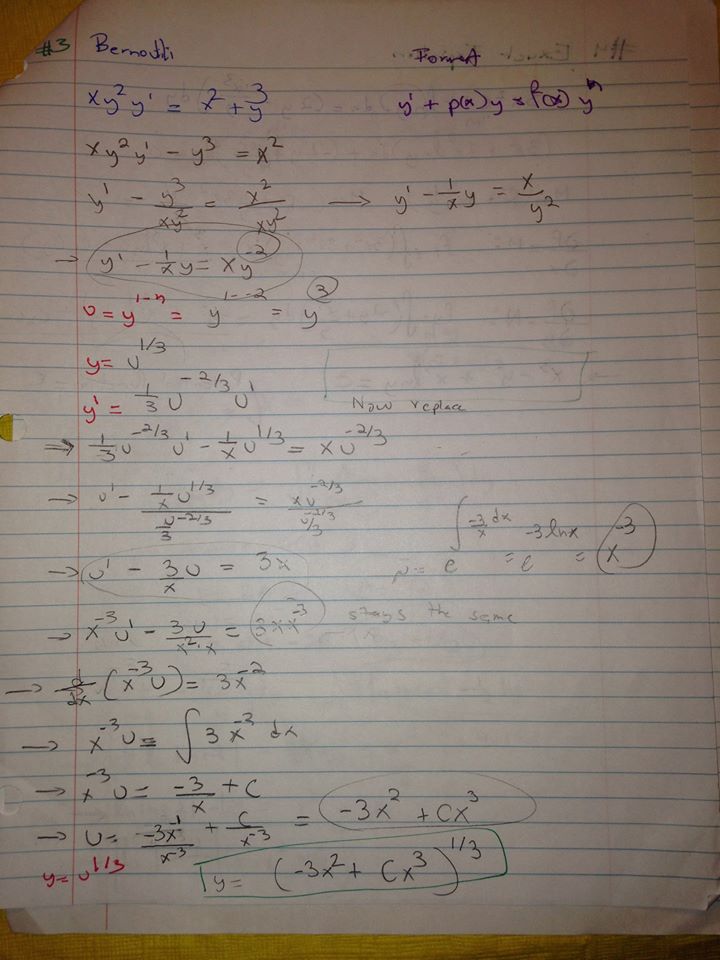 #3 Bernoulli Format
xy²y' = x² + y³ y' + p(x)y = f(x) yⁿ
xy²y' - y³ = x²
y' - y³/xy² = x²/xy² → y' - 1/x y = x/y²
→ y' - 1/x y = xy⁻²
u = y¹⁻ⁿ = y¹⁻⁻² = y³
y = u^1/3
y' = 1/3 u^-2/3 u'
Now replace
⇒ 1/3 u^-2/3 u' - 1/x u^1/3 = x u^-2/3
→ u' - (1/x u^1/3)/(u^-2/3/3) = (x u^-2/3)/(u^-2/3/3)
→ u' - 3u/x = 3x μ = e^∫ -3/x dx = e^-3lnx = x⁻³
→ x⁻³u' - 3u/x²·x = 3xx⁻³ stays the same
→ d/dx (x⁻³u) = 3x⁻²
→ x⁻³u = ∫ 3x⁻² dx
→ x⁻³u = -3/x + C
→ u = -3x⁻¹/x⁻³ + C/x⁻³ = -3x² + Cx³
y = u^1/3 y = (-3x² + Cx³)^1/3